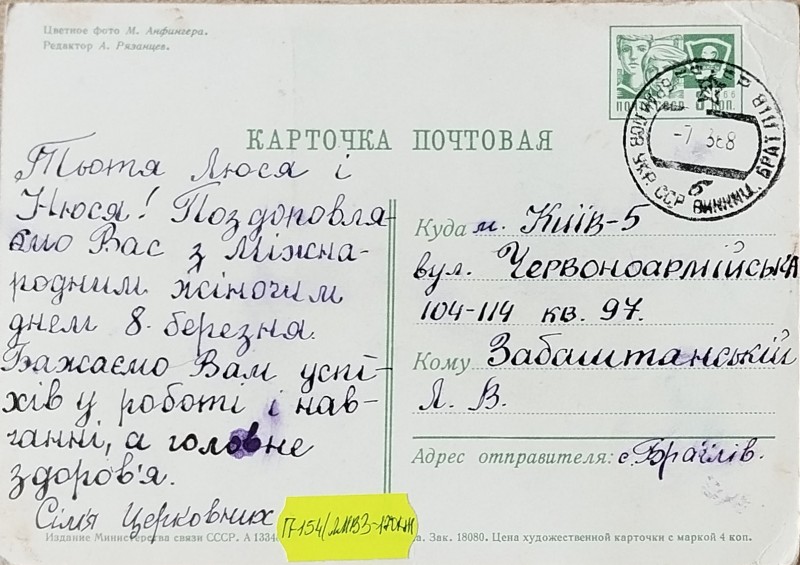 Цветное фото М. Анфингера.
Редактор А. Рязанцев.
ПОЧТА СССР
КАРТОЧКА ПОЧТОВАЯ
-7 3 68
УКР. ССР
б
Тьотя Люся і
Нюся! Поздоровля-
ємо Вас з Міжна-
родним жіночим
днем 8 березня.
Бажаємо Вам успі-
хів у роботі і нав-
чанні, а головне
здоров'я.
Сім'я Церковних
Куда м. Київ-5
вул. Червоноармійська
104-114 кв. 97.
Кому Забаштанській
Л. В.
Адрес отправителя: с. Браїлів.
П-154/
Издание Министерства связи СССР. А 1334
Зак. 18080. Цена художественной карточки с маркой 4 коп.